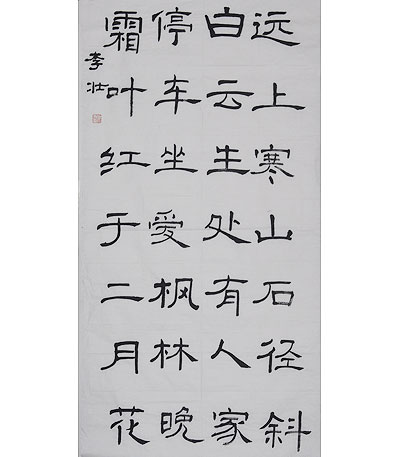 远上寒山石径斜
白云生处有人家
停车坐爱枫林晚
霜叶红于二月花
李壮